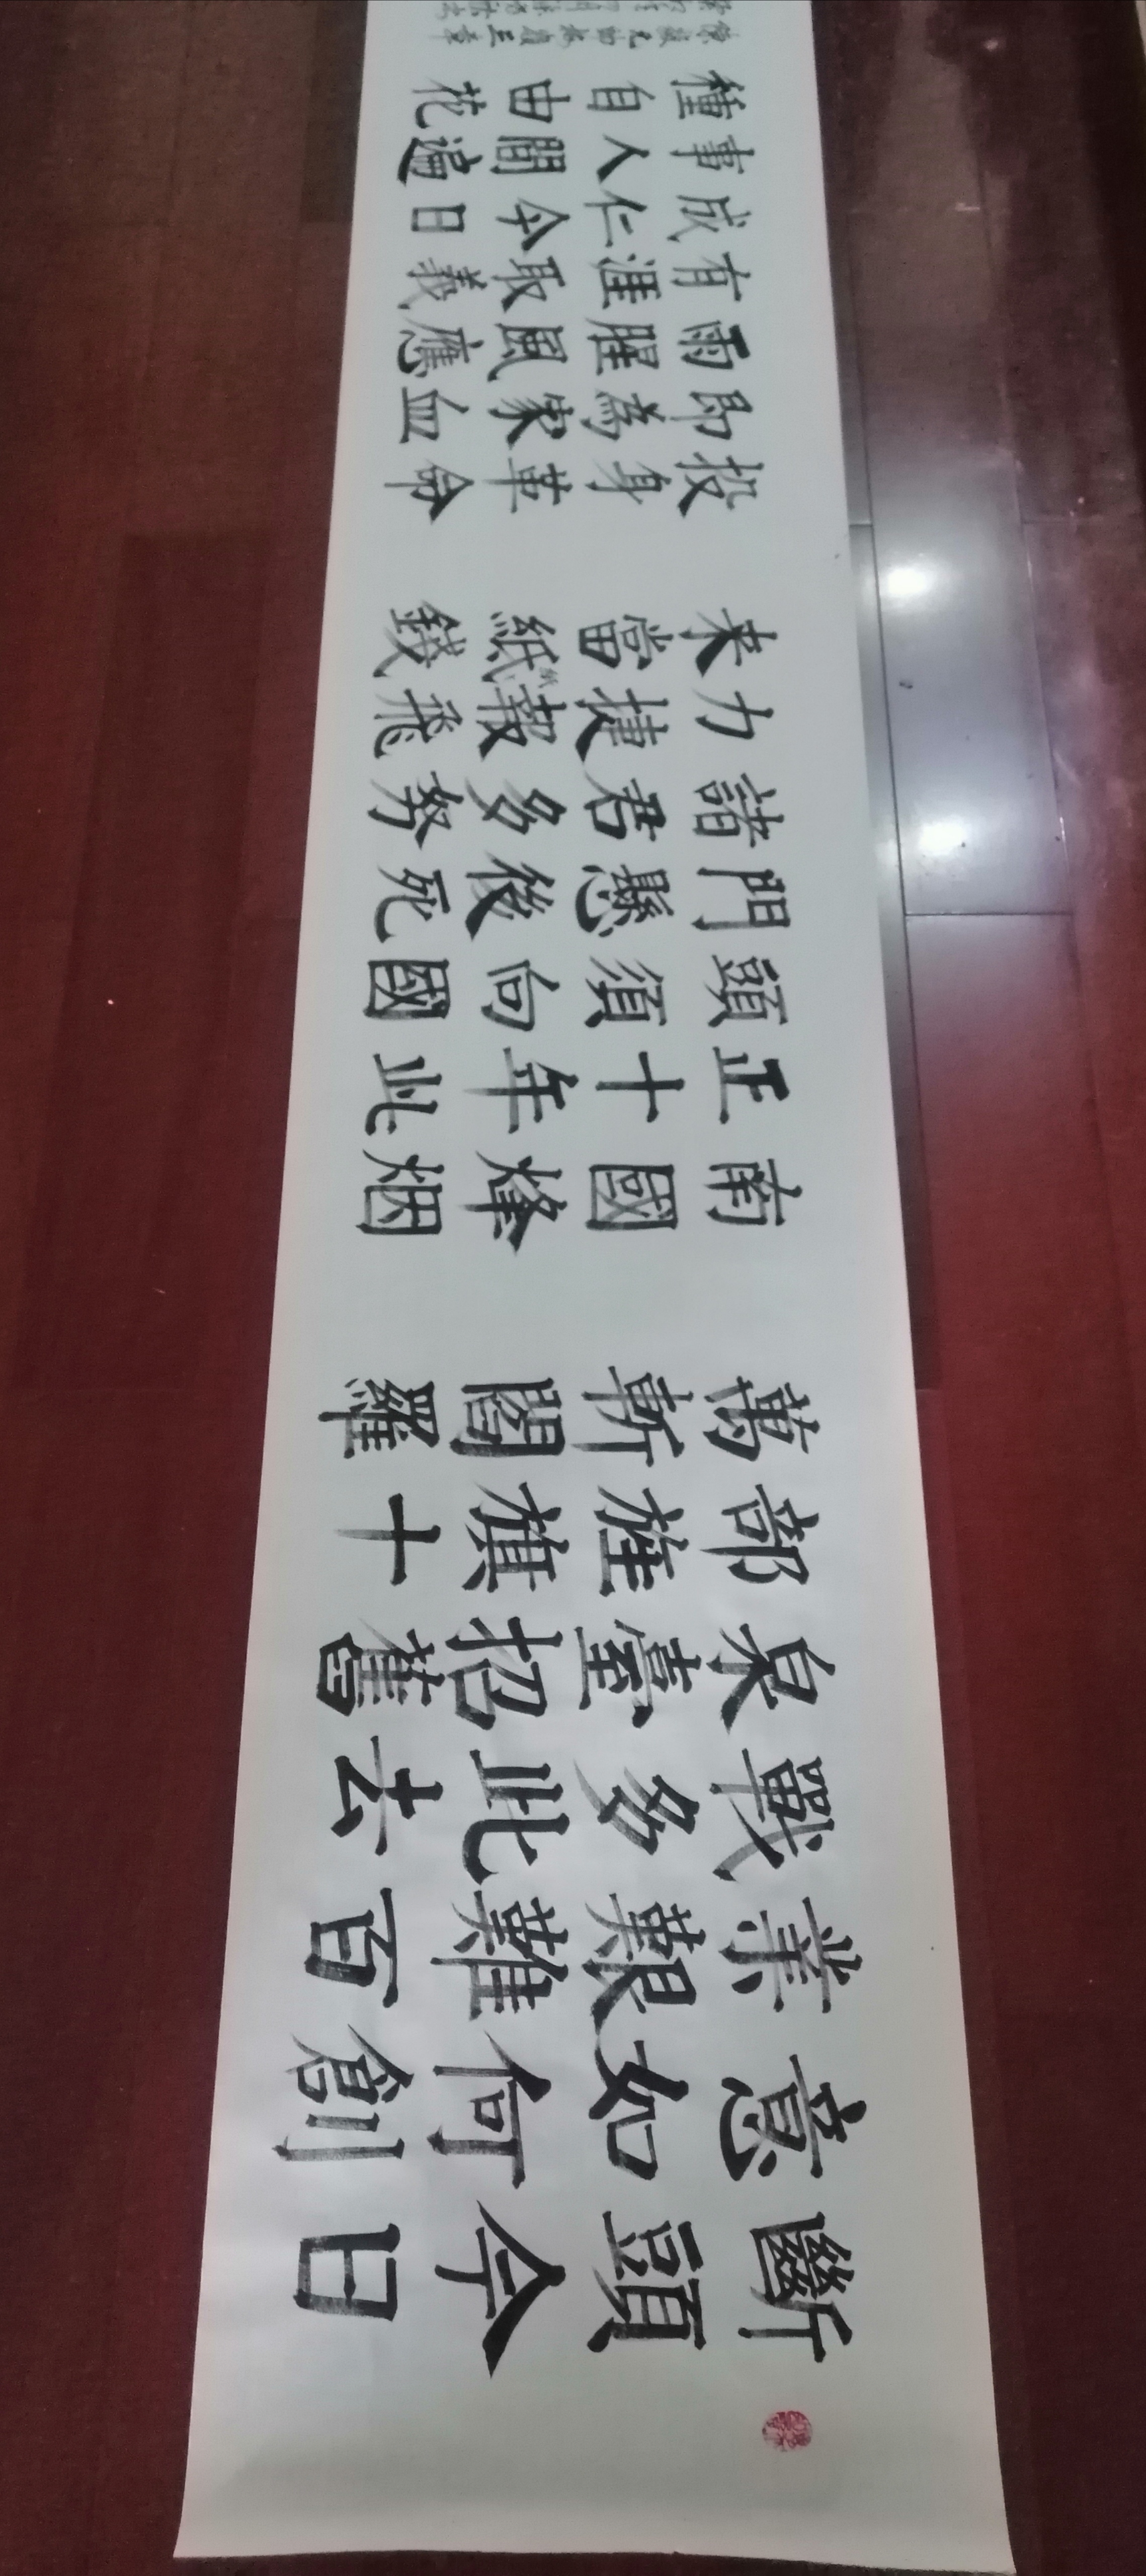 斷頭今日
意如何創
業艱難百
戰多此去
泉臺招舊
部旌旗十
萬斬閻羅
南國烽烟
正十年此
頭須向國
門懸後死
諸君多努
力捷報飛
来當紙錢
紙
投身革命
即為家血
雨腥風應
有涯取義
成仁今日
事人間遍
種自由花
陳毅元帥梅嶺三章